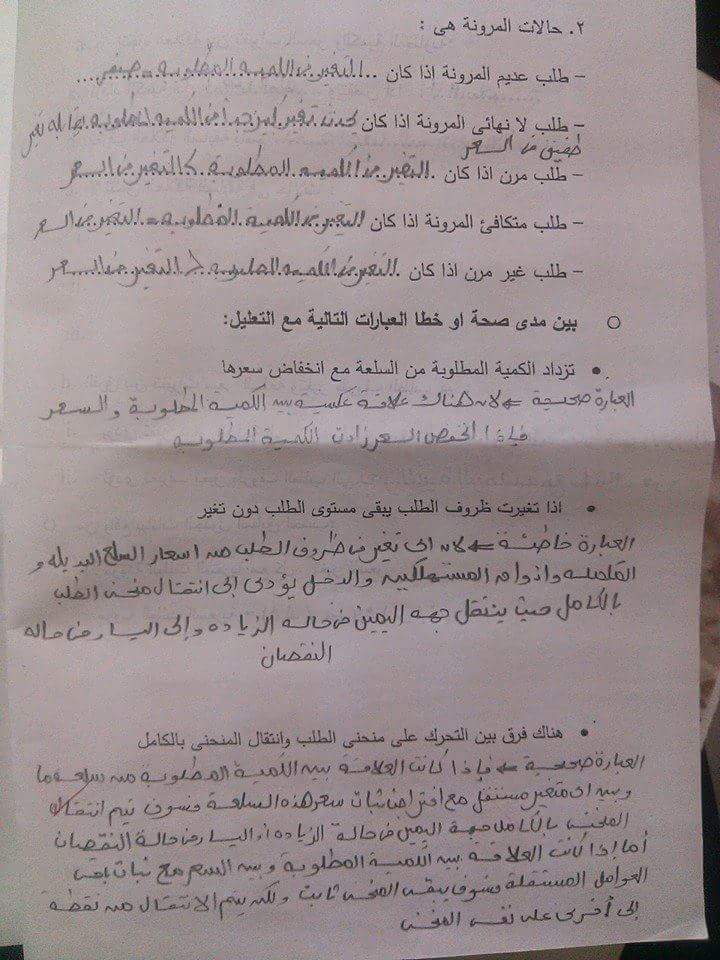 ٢. حالات المرونة هى :
- طلب عديم المرونة اذا كان ..التغير فى الكمية المطلوبة = صفر...
- طلب لا نهائى المرونة اذا كان يحدث تغير كبير جدا فى الكمية المطلوبة بمقابله تغير
طفيف فى السعر
- طلب مرن اذا كان ..التغير فى الكميه المطلوبة > التغير فى السعر
- طلب متكافئ المرونة اذا كان التغير فى الكمية المطلوبه = التغير فى السعر
- طلب غير مرن اذا كان ..التغير فى الكميه المطلوبه < التغير فى السعر
○ بين مدى صحة او خطا العبارات التالية مع التعليل:
• تزداد الكمية المطلوبة من السلعة مع انخفاض سعرها
العبارة صحيحة ← لان هناك علاقة عكسية بين الكمية المطلوبة والسعر
فإذا انخفض السعر زادت الكمية المطلوبه
• اذا تغيرت ظروف الطلب يبقى مستوى الطلب دون تغير
العبارة خاطئة ← لان اى تغير فى ظروف الطلب من اسعار السلع البديله و
المكمله واذواق المستهلكين والدخل يؤدى إلى انتقال منحنى الطلب
بالكامل حيث ينتقل جهه اليمين فى حاله الزياده وإلى اليسار فى حاله
النقصان
• هناك فرق بين التحرك على منحنى الطلب وانتقال المنحنى بالكامل
العبارة صحيحية ← فإذا كانت العلاقة بين الكمية المطلوبة من سلعة ما
وبين اى متغير مستقل مع افتراض ثبات سعر هذه السلعة فسوف يتم انتقال
المنحنى بالكامل جهة اليمين فى حالة الزياده أو اليسار فى حالة النقصان
أما إذا كانت العلاقة بين الكمية المطلوبة وبين السعر مع ثبات باقى
العوامل المستقلة فسوف يبقى المنحنى ثابت ولكن يتم الانتقال من نقطة
إلى أخرى على نفس المنحنى